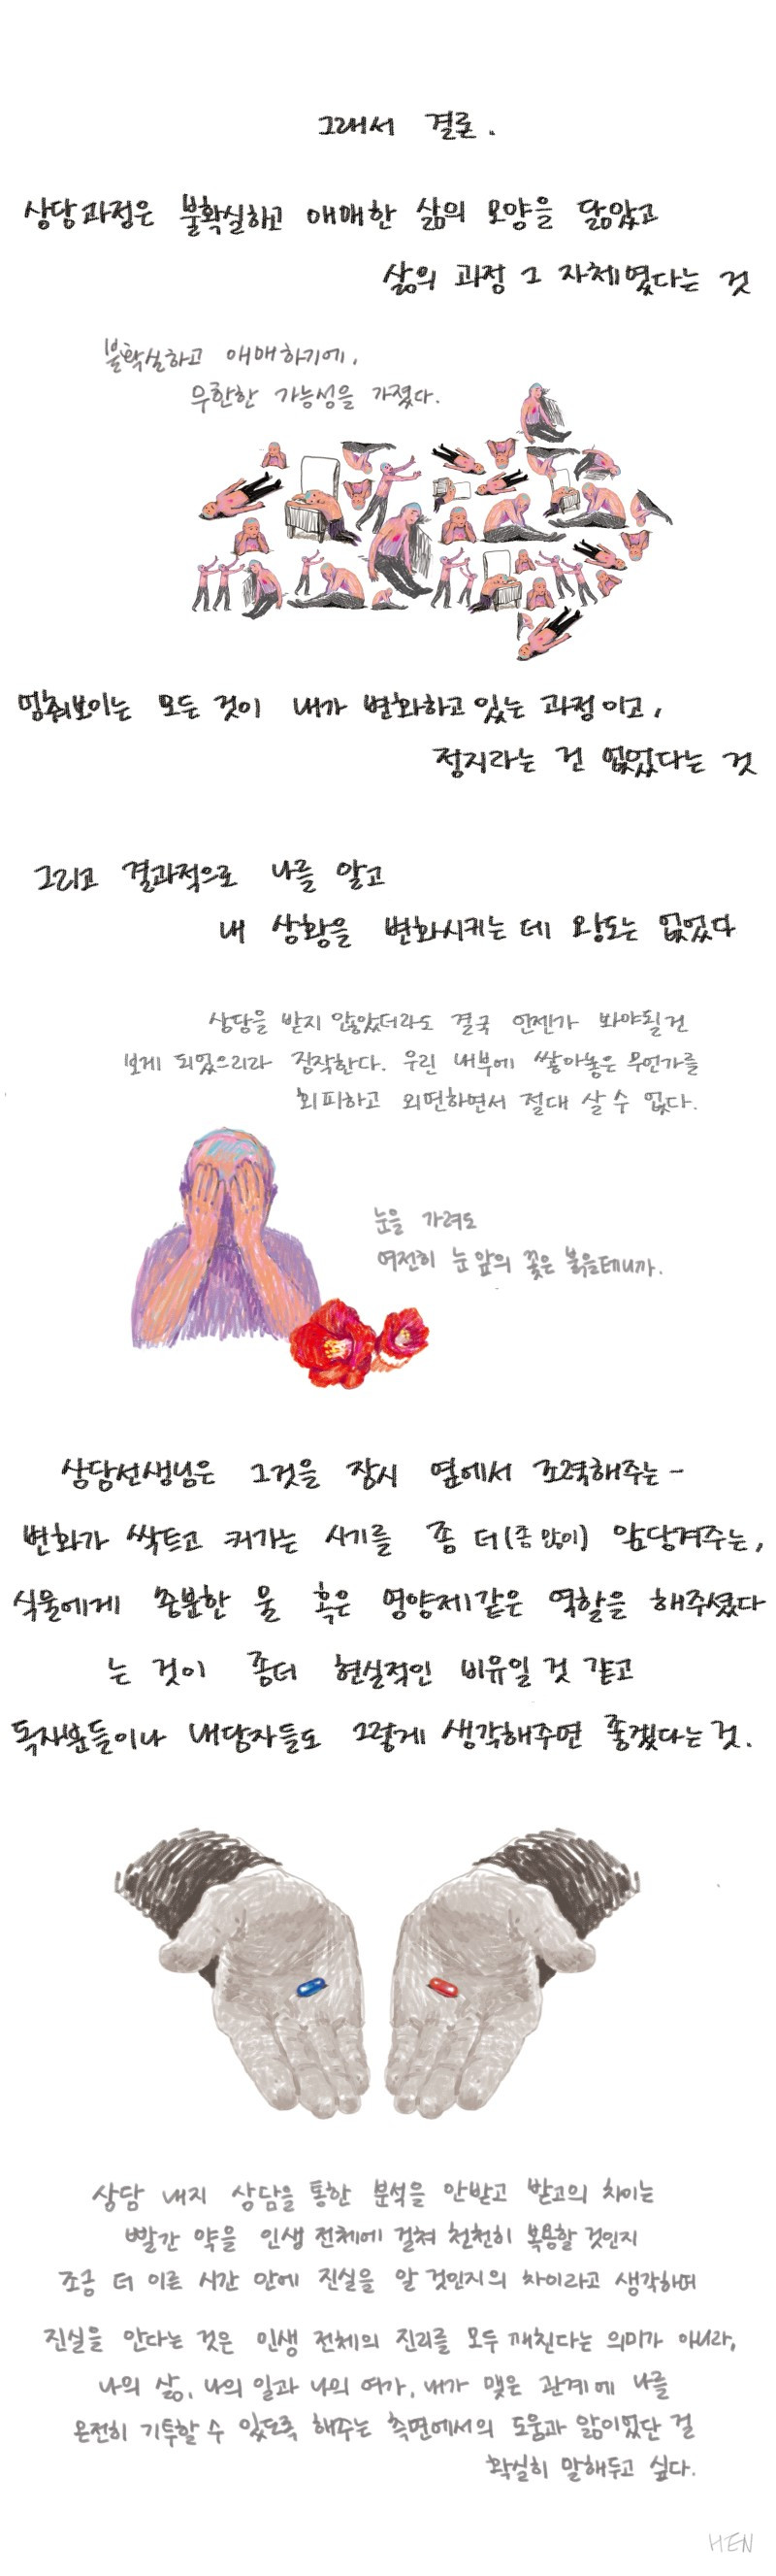 그래서 결론.
상담과정은 불확실하고 애매한 삶의 모양을 닮았고
삶의 과정 그 자체였다는 것
불확실하고 애매하기에,
무한한 가능성을 가졌다.
멈춰보이는 모든 것이 내가 변화하고 있는 과정이고,
정지라는 건 없었다는 것
그리고 결과적으로 나를 알고
내 상황을 변화시키는 데 왕도는 없었다
상담을 받지 않았더라도 결국 언젠가 봐야될 건
보게 되었으리라 짐작한다. 우린 내부에 쌓아놓은 무언가를
회피하고 외면하면서 절대 살 수 없다.
눈을 가려도
여전히 눈 앞의 꽃은 붉을테니까.
상담선생님은 그것을 잠시 옆에서 조력해주는-
변화가 싹트고 커가는 시기를 좀 더(좀 많이) 앞당겨주는,
식물에게 충분한 물 혹은 영양제같은 역할을 해주셨다
는 것이 좀더 현실적인 비유일 것 같고
독자분들이나 내담자들도 그렇게 생각해주면 좋겠다는 것.
상담 내지 상담을 통한 분석을 안받고 받고의 차이는
빨간 약을 인생 전체에 걸쳐 천천히 복용할 것인지
조금 더 이른 시간 안에 진실을 알 것인지의 차이라고 생각하며
진실을 안다는 것은 인생 전체의 진리를 모두 깨친다는 의미가 아니라,
나의 삶, 나의 일과 나의 여가, 내가 맺은 관계에 나를
온전히 기투할 수 있도록 해주는 측면에서의 도움과 앎이었단 걸
확실히 말해두고 싶다.
HEN